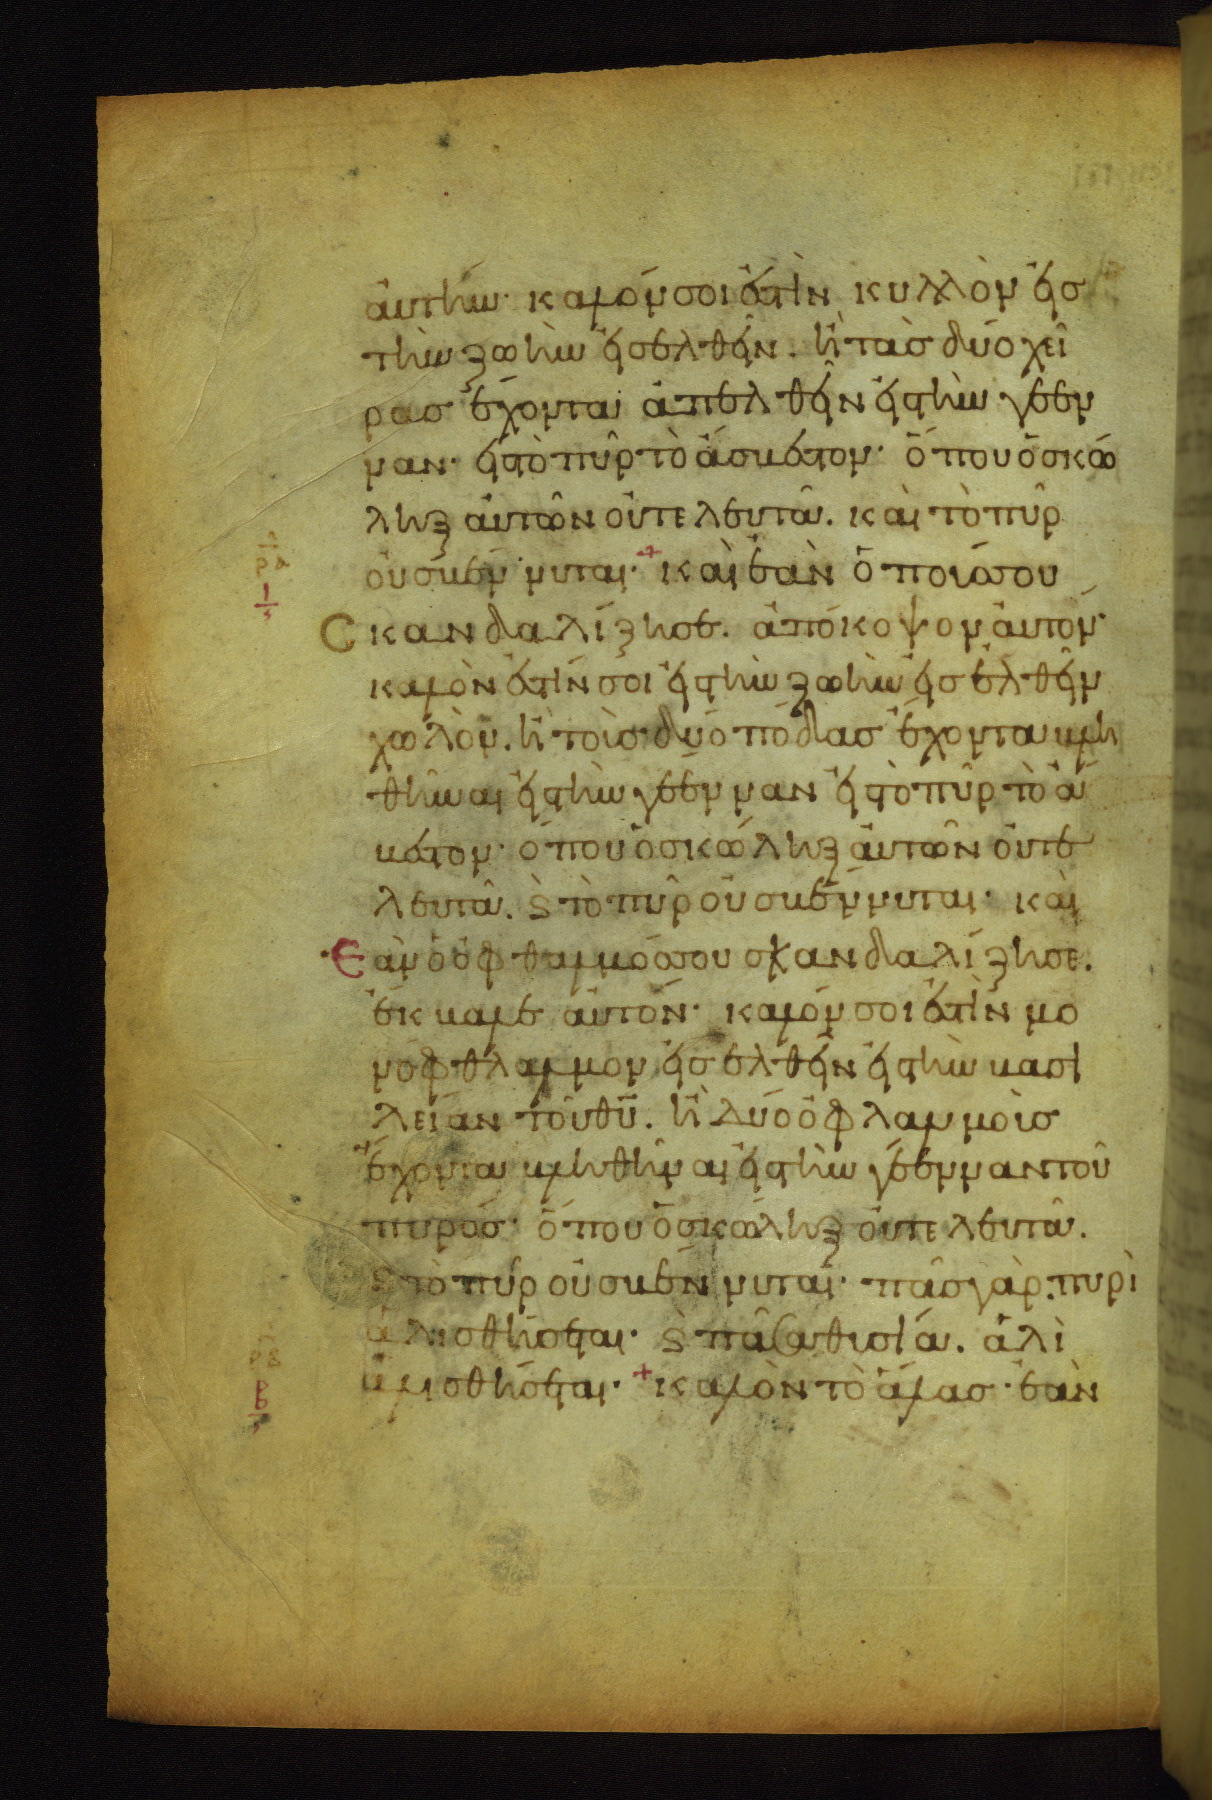 ἀυτήν· καλόν σοι ἐστὶν κυλλὸν εἰσ
τὴν ζωὴν εἰσελθεῖν. ἢ τὰσ δύο χεῖ
ρασ ἔχοντα ἀπελθεῖν εἰς τὴν γέεν
ναν· εἰς τὸ πῦρ τὸ ἄσβεστον· ὅπου ὁ σκώ
ληξ ἀυτῶν οὐ τελευτᾶ. καὶ τὸ πῦρ
οὐ σβέννυται· + καὶ ἐὰν ὁ ποὺσ σου
Σκανδαλίζησε. ἀπόκοψον ἀυτόν·
καλὸν ἐστίν σοι εἰς τὴν ζωὴν εἰσελθεῖν
χωλὸν. ἢ τοὺσ δύο πόδασ ἔχοντα βλη
θῆναι εἰς τὴν γέενναν εἰς τὸ πῦρ τὸ ἄσ
βεστον· ὅπου ὁ σκώληξ ἀυτῶν οὐ τε
λευτᾶ. ϗ τὸ πῦρ οὐ σβέννυται· καὶ
Ἐὰν ὁ ὀφθαλμόσ σου σκανδαλίζησε.
ἔκβαλε ἀυτόν· καλόν σοι ἐστὶν μο
νόφθλαλμον εἰσελθεῖν εἰς τὴν βασι
λείαν τοῦ θῦ. ἢ δύο ὀφλαλμοὺσ
ἔχοντα βληθῆναι εἰς τὴν γέενναν τοῦ
πυρόσ· ὅπου ὁ σκώληξ οὐ τελευτᾶ.
ϗ τὸ πῦρ οὐ σβέννυται· πᾶσ γὰρ πυρὶ
ἁλισθήσεται· ϗ πᾶσα θυσία. ἁλὶ
ἁλισθήσεται· + καλὸν τὸ ἅλασ· ἐὰν
ρα
ι
ρβ
β